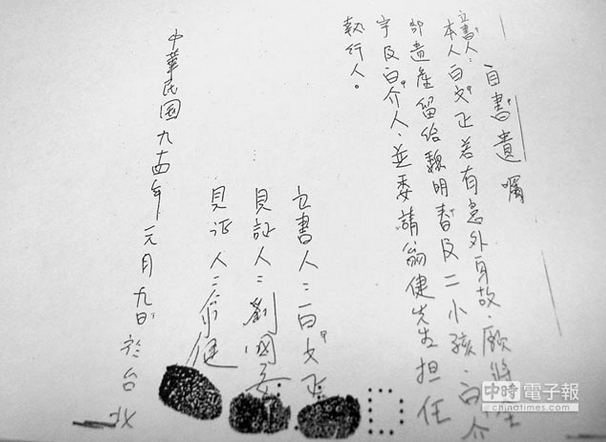 自書遺囑
立書人：
本人白文正若有意外身故，願將全
部遺產留給魏明春及二小孩，白介
宇及白介人，並委請翁健先生擔任
執行人。
立書人：白文正
見証人：劉國安
見证人：翁健
中華民国九十四年元月九日於台北
中時電子報
chinatimes.com